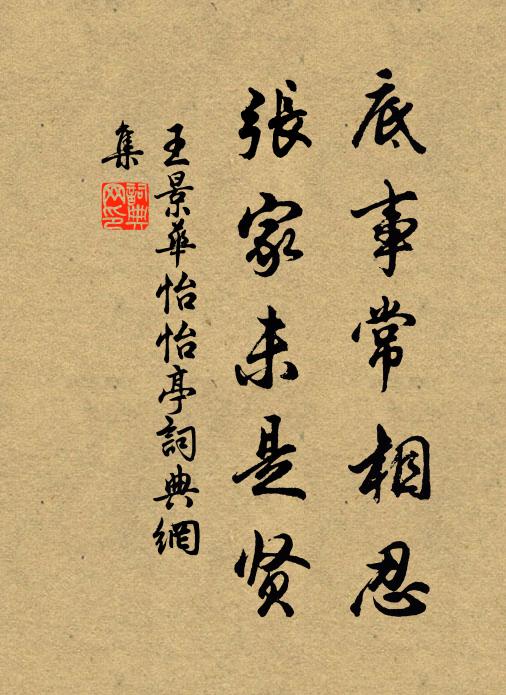 底事常相忍
張家未是贤
王景華怡怡亭詞典網
集
詞典
网印